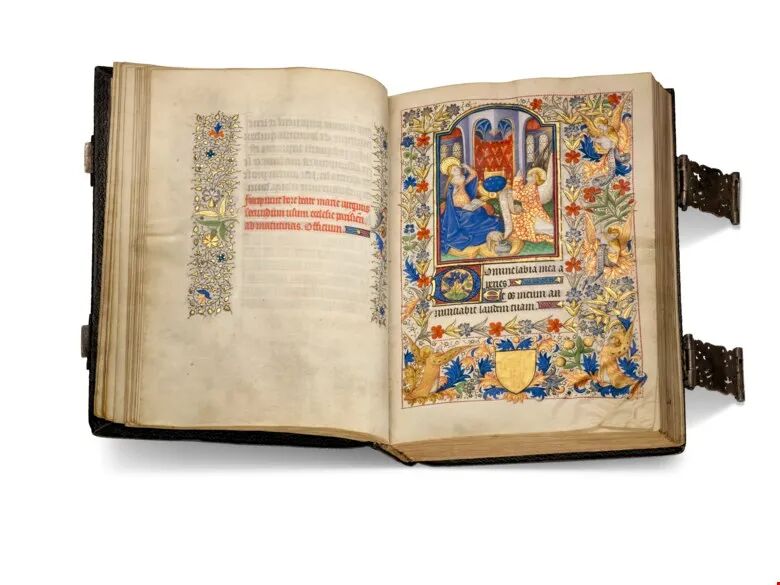 Incipiunt hore beate marie virginis
secundum usum ecclesie parisień
ad matutinas. Officium
Domine labia mea a
peries
Et os meum an
nunciabit laudem tuam.